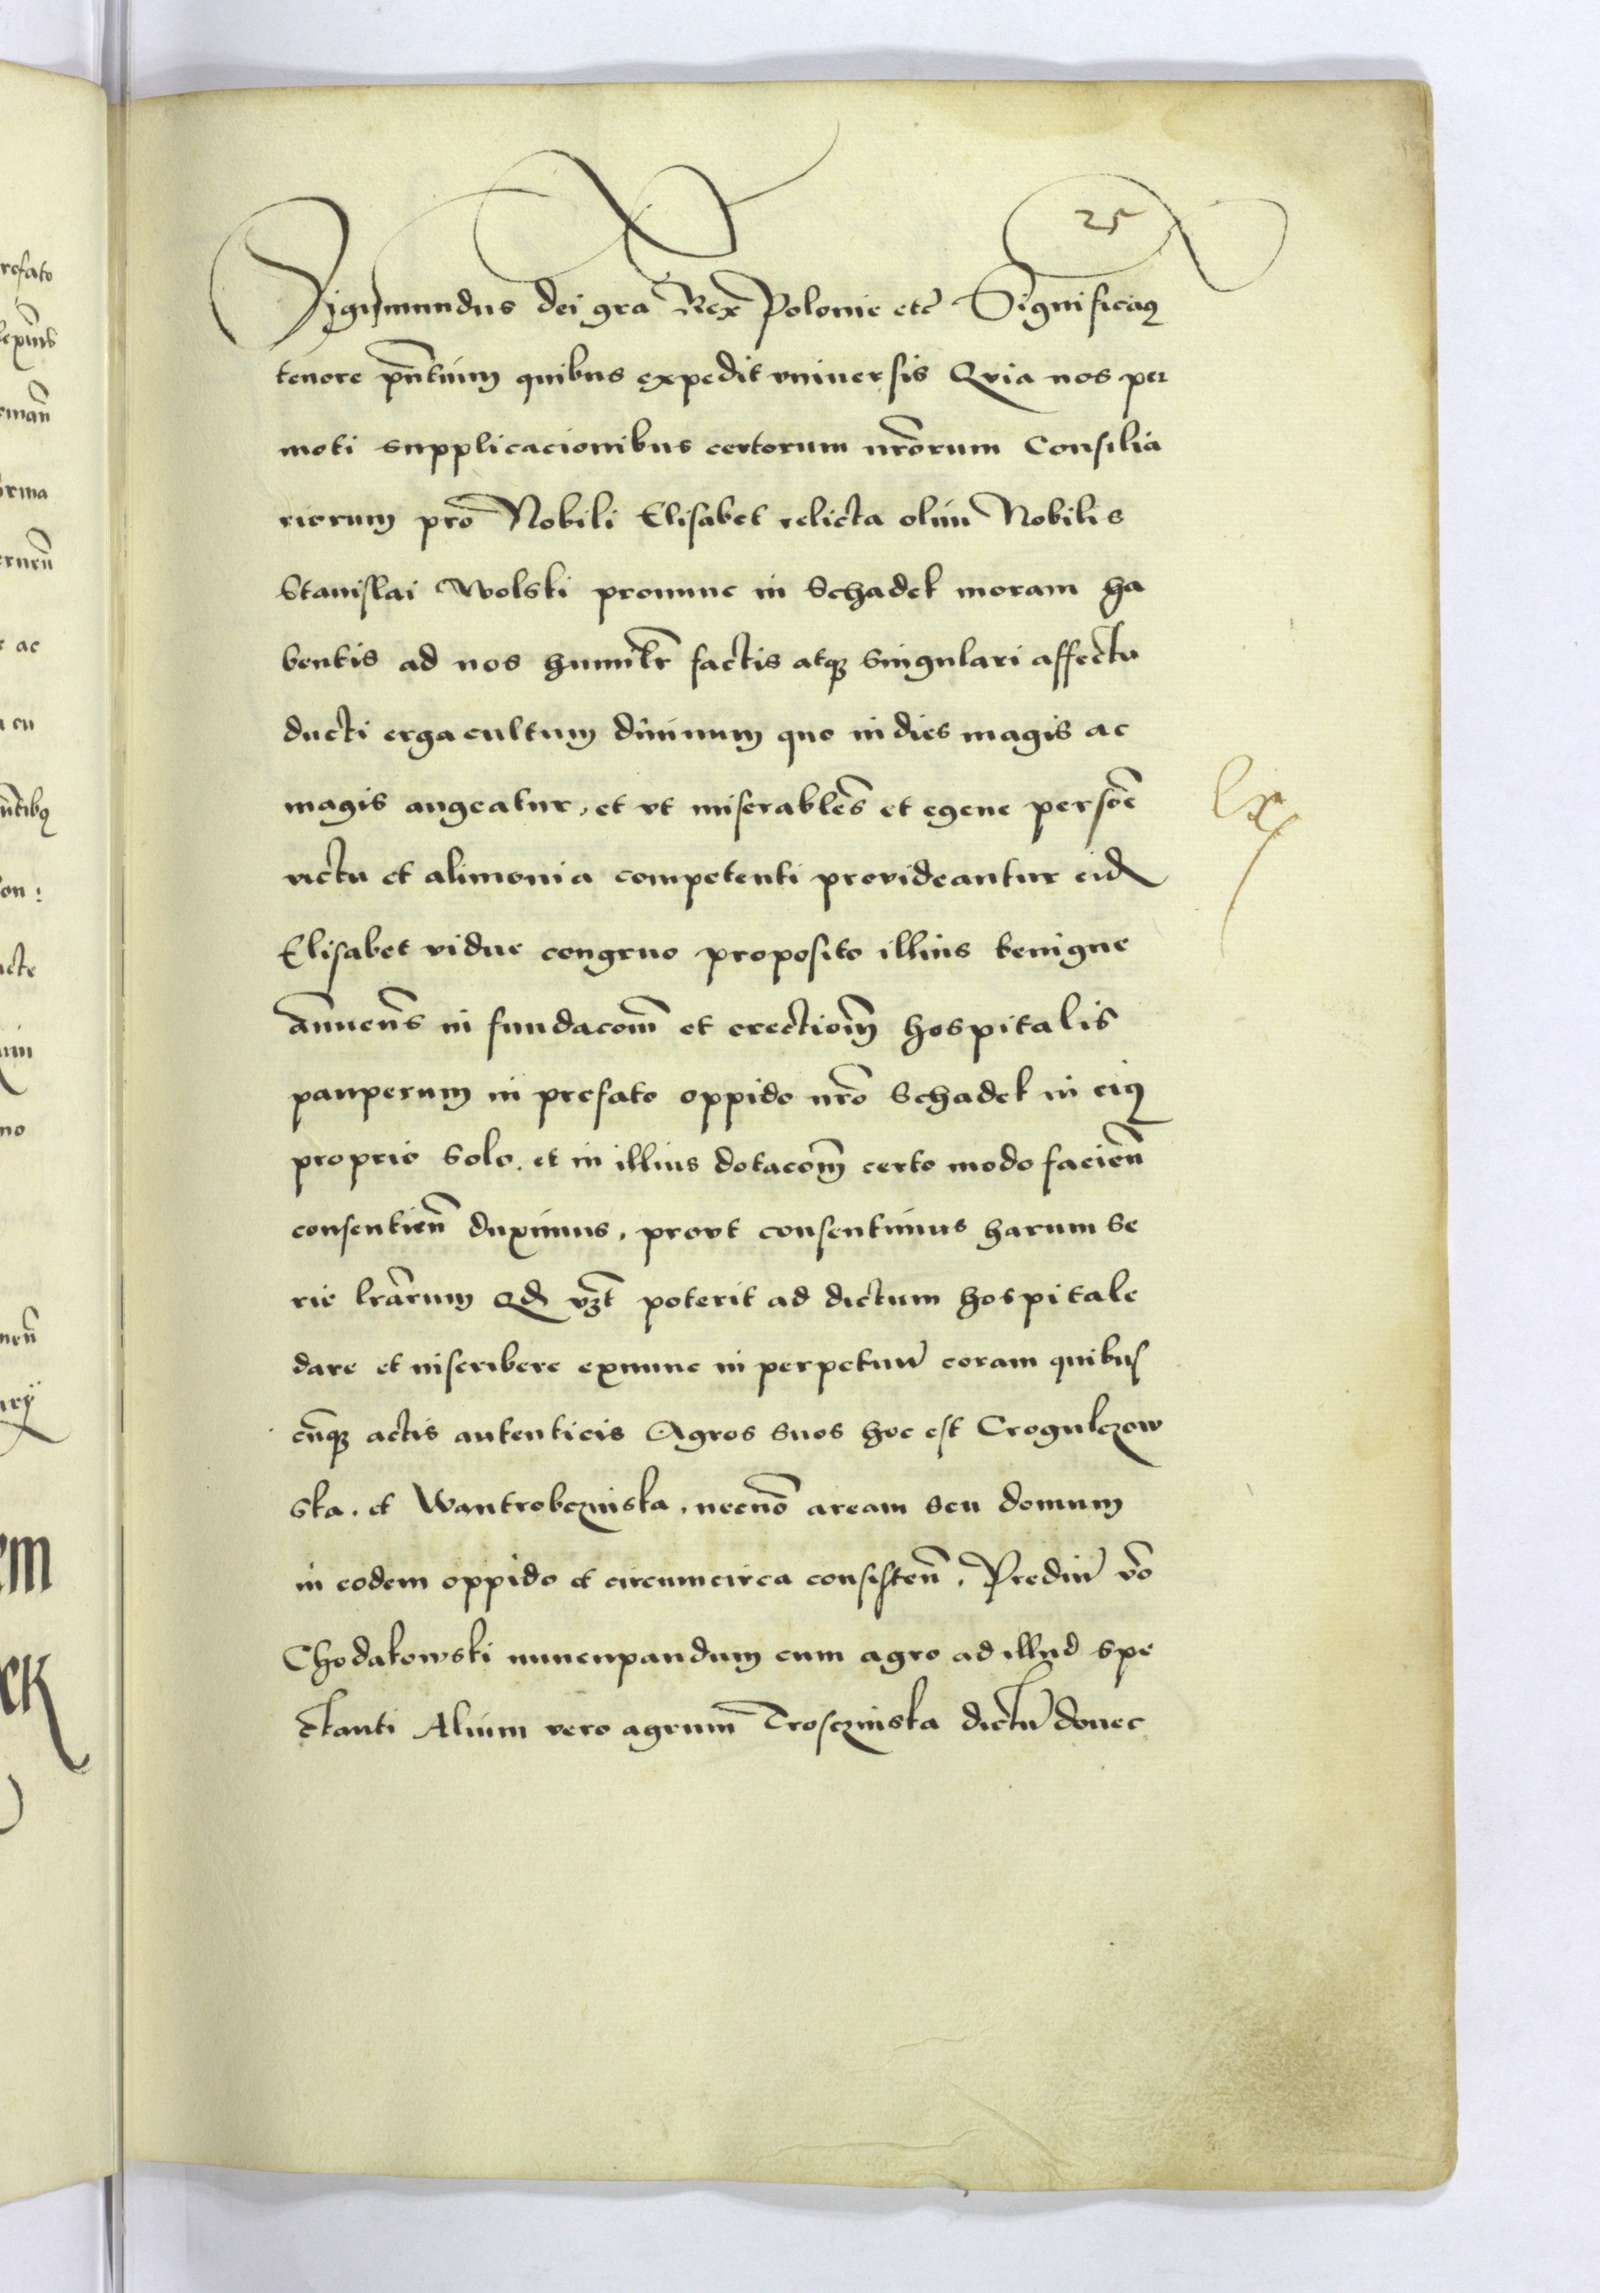 25
Sigismundus dei gra Rex Polonie etc Significaꝫ
tenore pñtium quibus expedit vniuersis Qvia nos per
moti supplicacionibus certorum nrōrum Consilia
riorum pro Nobili Elisabet relicta olim Nobilis
Stanislai Wolski pronunc in Schadek moram ha
bentis ad nos humilr̄ factis atqꝫ singulari affectu
ducti erga cultum diuinum quo in dies magis ac
magis augeatur, et vt miserabiles et egene persōe
victu et alimonia competenti provideantur eid
Elisabet vidue congruo proposito illius benigne
ānuens in fundacōm et erectiōm hospitalis
pauperum in prefato oppido nrō Schadek in eiꝰ
proprio solo. et in illius dotacōm certo modo facien̄
consentien̄ duximus, provt consentimus harum se
rie lrārum Qd vꝫt poterit ad dictum hospitale
dare et inscribere exnunc in perpetuū coram quibus
cūqꝫ actis autenticis Agros suos hoc est Crogulczow
ska. et Wantrobczinska, necnō aream seu domum
in eodem oppido et circumcirca consisten̄, Prediū vō
Chodakowski nuncupandum cum agro ad illud spe
ctanti Alium vero agrum Trosczinska dictū donec
refato
ac